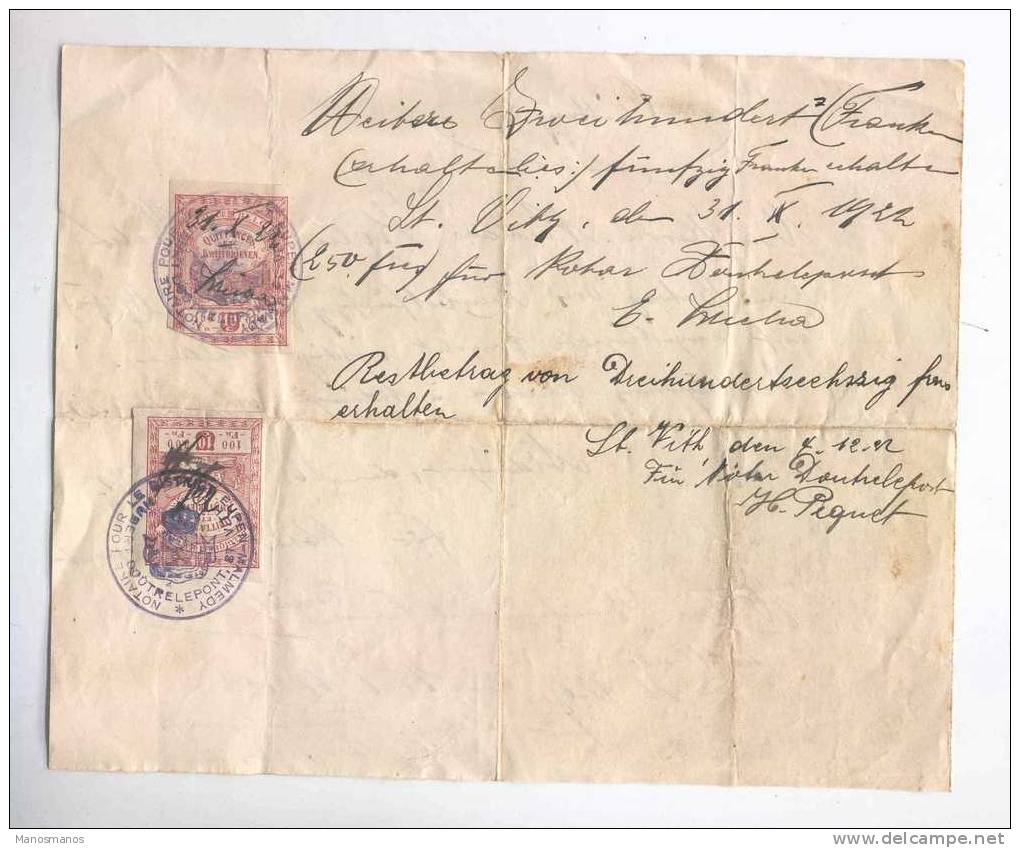 Weitere Zweihundert (Franken
erhalts lies:) fünfzig Franken erhalten
St. Vith, den 31. X. 1922
(250. frs) für Notar Doutrelepont
E. Micha
Restbetrag von Dreihundertsechszig frns
erhalten
St. Vith, den 7. 12. 22
Für Notar Doutrelepont
H. Pequet
31. X 22
QUITTANCES
KWIJTBRIEVEN
10
NOTAIRE POUR
EUPEN-MALMEDY
100 10 100
FR. FR.
NOTAIRE POUR LE DISTRICT EUPEN-MALMEDY
DOUTRELEPONT, ST VITH
Manosmanos
www.delcampe.net